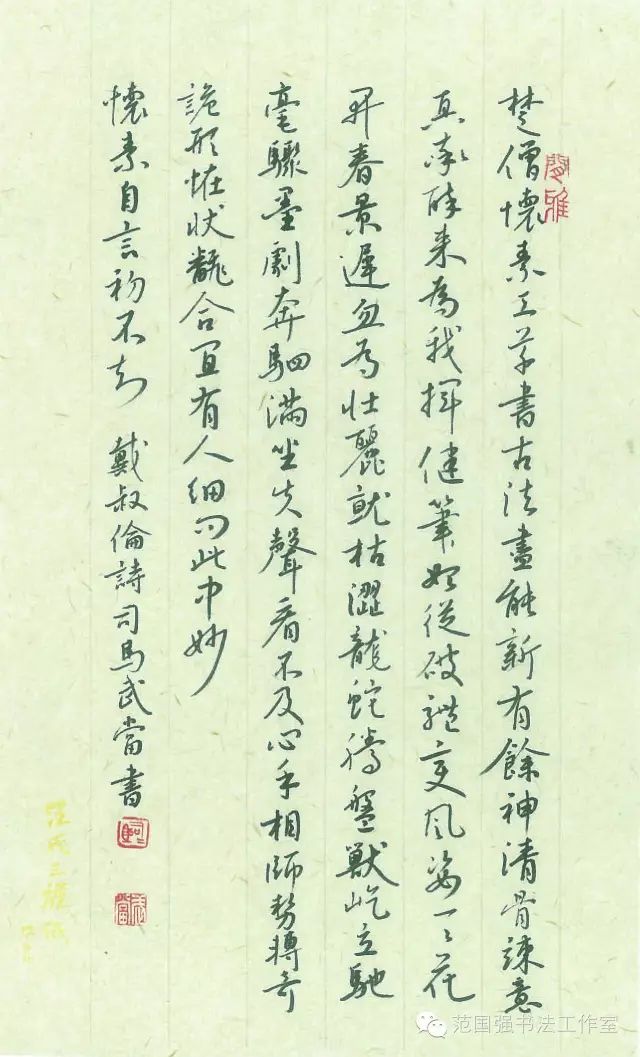 楚僧懷素工草書古法盡能新有餘神清骨竦意
真率醉来為我揮健筆始從破體變風姿一々花
开春景遲忽為壯麗就枯澀龍蛇騰盤獸屹立馳
毫驟墨劇奔駟滿坐失聲看不及心手相師勢轉奇
詭形恠状翻合宜有人细问此中妙
懷素自言初不知 戴叔倫詩司馬武當書
范国强书法工作室